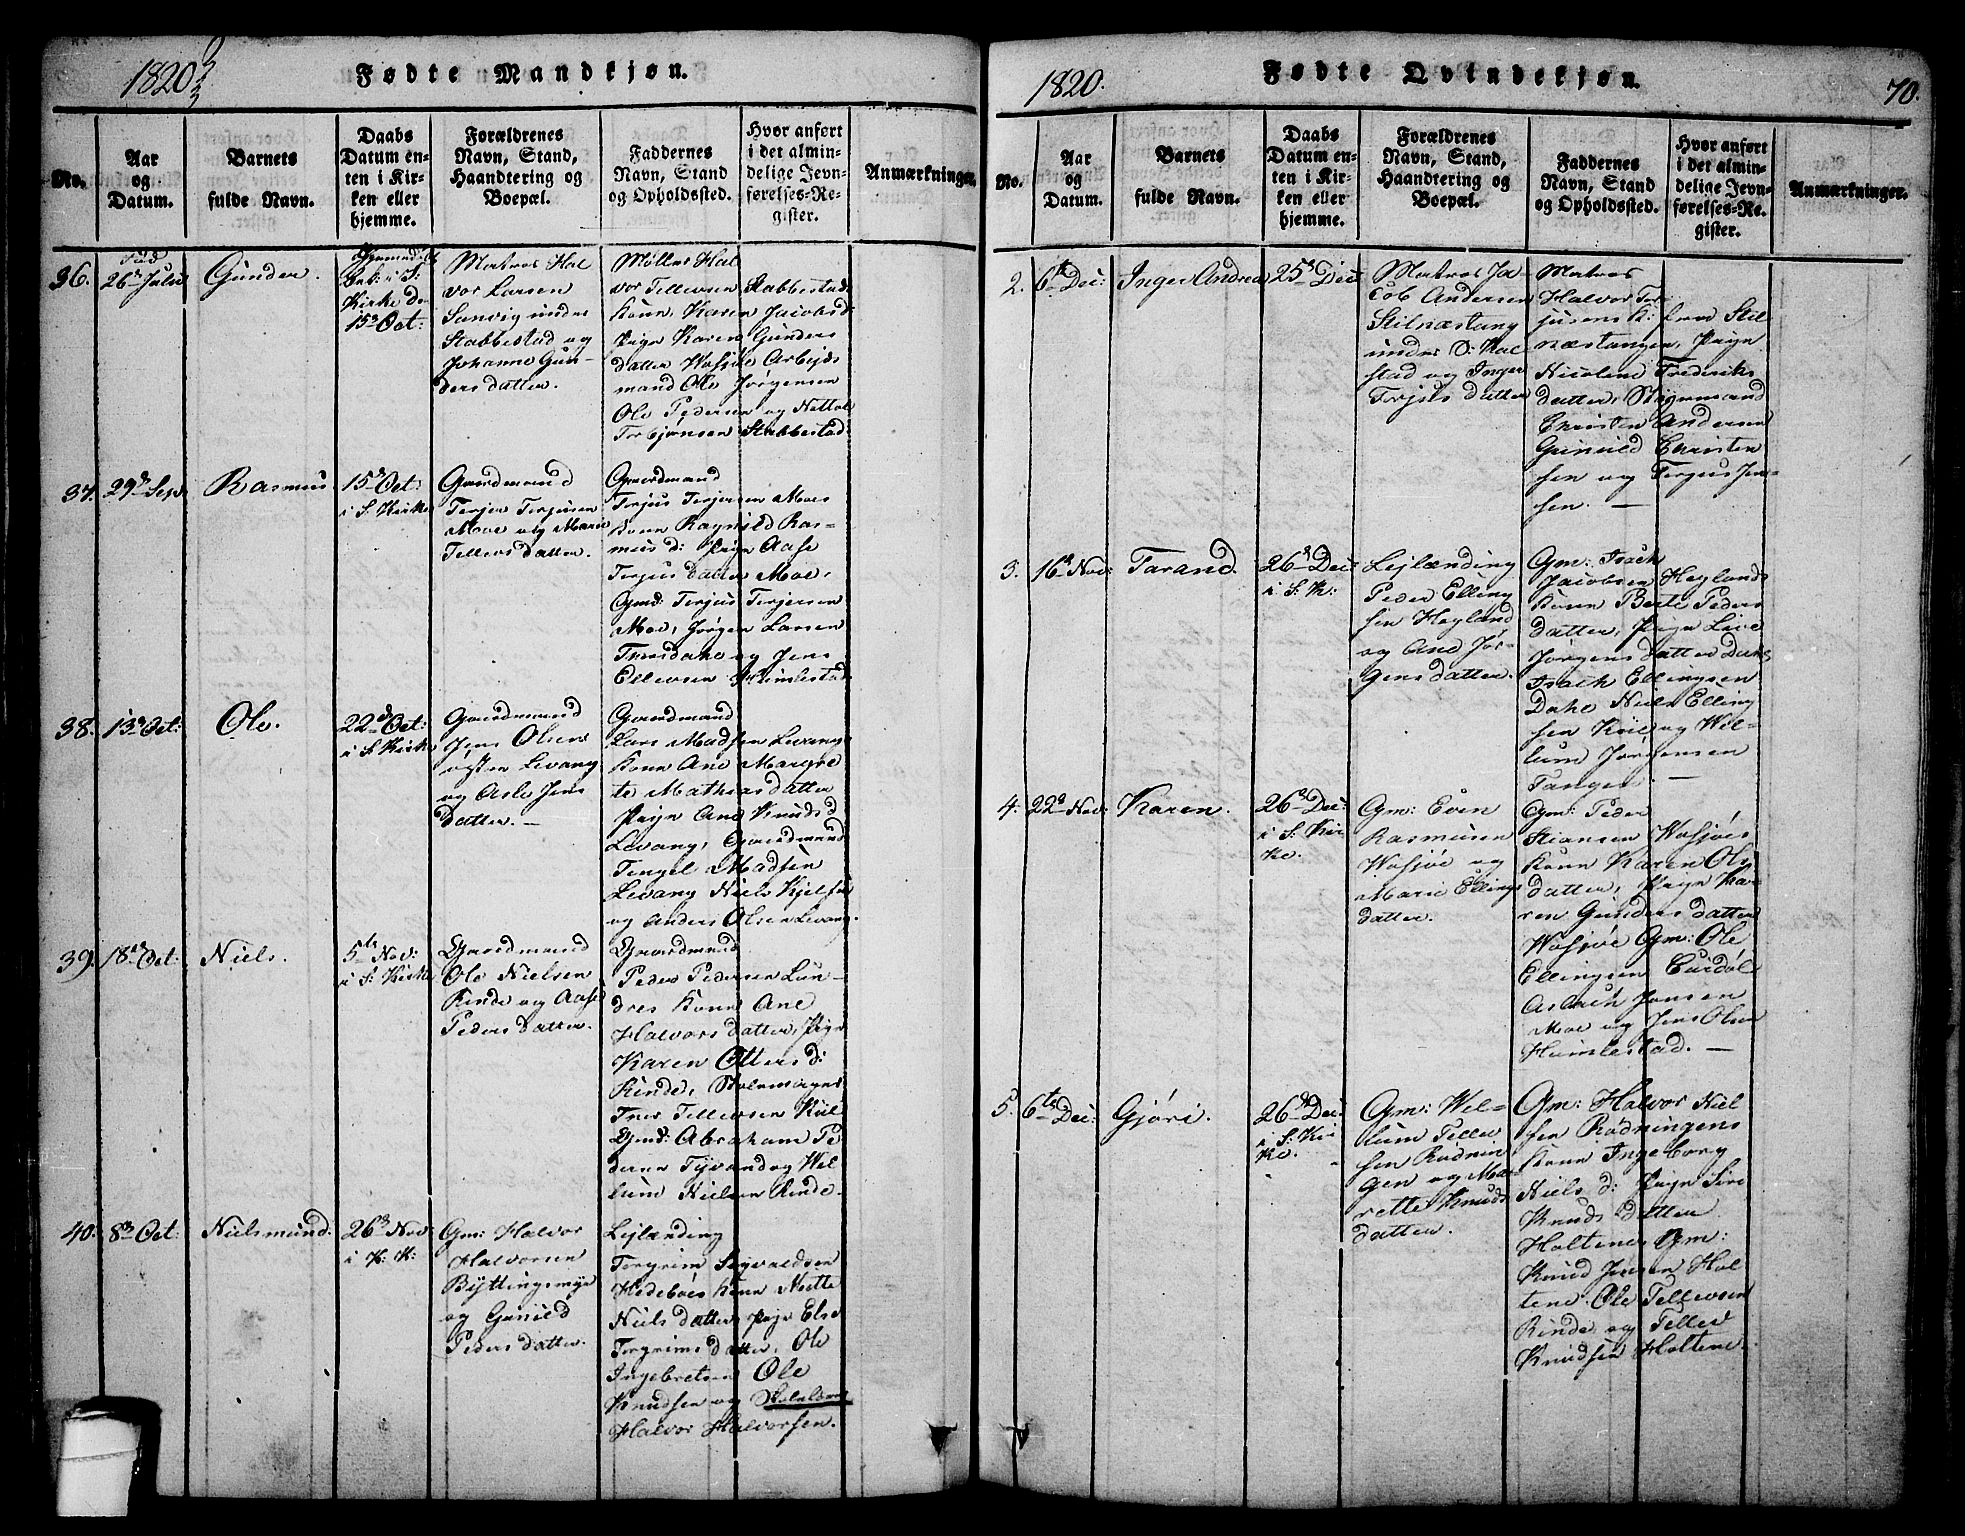 1820
Fødte Mandkjøn.
No.
Aar
og
Datum.
Barnets
fulde Navn.
Daabs
Datum en-
ten i Kir-
ken eller
hjemme.
Forældrenes
Navn, Stand,
Haandtering og
Boepæl.
Faddernes
Navn, Stand
og Opholdssted.
Hvor anført
i det almin-
delige Jevn-
førelses-Re-
gister.
Anmærkninger.
36.
Fød
26 Julii
Gunder.
Kirke d.
15 Oct:
Matros Hal
vor Larsen
Sanvig under
Stabbestad og
Johanne Gun-
ders datter.
Møller Hal
vor Tellevsen Stabbestad
Kone Karen Jacobsd
Pige Karen Gunders
datter Wasjøe Arbejds
mand Ole Jørgensen
Ole Pedersen og Nettol
Torbjønsen Stabbestad.
37.
29 Sep.
Rasmus
15 Oct:
i S: Kirke
Gaardmand
Terjer Terjusen
Moe og Marie
Tellevs datter.
Gaardmand
Terjus Terjersen Moes
Kone Ragnild Ras-
mus d: Pige Aase
Terjus datter Moe,
Gmd: Terjus Terjersen
Moe, Jørgen Larsen
Tveisdahe og Jens
Ellevsen Humlestad
38.
13 Oct:
Ole.
22 Oct:
i S. Kirke
Gaardmand
Jens Olsen
østen Levang
og Asle Jens
datter. —
Gaardmand
Lars Madsen Levangs
Kone Ane Margre
te Mathias datter
Pige Ane Knuds d
Levang, Gaardmand
Tengel Madsen
Levang Niels Kjelsen
og Anders Olsen Levang.
39.
18 Oct:
Niels.
5te Nov:
i S: Kirke
Gaardmand
Ole Nielsen
Rinde og Aase
Peders datter.
Gaardmand
Peder Pedersen Lun-
dres Kone Ane
Halvors datter, Pige
Karen Otters d:
Rinde, Skolemager
Tner Tellevsen Kiil
Gmd: Abraham Pe
dersen Tyvand og Wel
lum Nielsen Rinde.
40.
8 Oct:
Nielsmund.
26 Nov
i K: K:
Gm: Halvor
Halvorsen
Byttingsmyr
og Gunild
Peders datter.
Lejlænding
Torgrim Sigvaldsen
Hedeboes Kone Mette
Niels datter, Pige Else
Torgrims datter, Ole
Ingebretsen Ole
Knudsen og
Halvor Halvorsen.
1820.
Fødte Qvindekjøn.
70.
No.
Aar
og
Datum.
Barnets
fulde Navn.
Daabs
Datum en-
ten i Kir-
ken eller
hjemme.
Forældrenes
Navn, Stand,
Haandtering og
Boepæl.
Faddernes
Navn, Stand
og Opholdssted.
Hvor anført
i det almin-
delige Jevn-
førelses-Re-
gister.
Anmærkninger.
2.
6te Dec:
Inger Andrea
25 Dec
Matros Ja
cob Andersen
Stilnæstang
under O: Kal
stad og Inger
Terjus datter
Matros
Halvor Ter-
jusens K: fra Stil
næstangen, Pige
Nicolene Frederiks
datter, Styrmand
Christen Andersen
Gunild Christen
sen og Terjus Jen-
sen. —
3.
16 Nov:
Tarand.
26 Dec
i S: K:
Lejlænding
Peder Elling
sen Heyland
og Ane Jør-
gens datter.
Gm: Isach
Jacobsen Heylands
Kone Berte Peders
datter, Pige Live
Jørgens datter Dahe,
Isach Ellingsen
Dahe Niels Elling
sen Kiil og Wil-
lum Jørgensen
Tangen. —
4.
22 Nov:
Karen.
26 Dec:
i S: Kir
ke.
Gm: Even
Rasmusen
Wasjøe og
Marie Ellings
datter.
Gm: Peder
Stiansen Wasjøes
Kone Karen Ols
datter, Pige Ka-
ren Gunders datter
Wasjøe Gm: Ole
Ellingsen Curdøl
Aslach Jensen
Moe og Jens Olsen
Humlestad. —
5.
6te Dec:
Gjøri.
26 Dec
i S: Kir
ke.
Gm: Wel-
lum Teller
sen Rødnin
gen og Ma-
rette Knuds
datter.
Gm: Halvor Niel
sen Rødningens
Kone Ingeborg
Niels d: Pige Siri
Knuds datter
Holtene, Gm:
Knud Jensen Hol
tene. Ole Tellevsen
Rinde og Tellev
Knudsen Holtene.